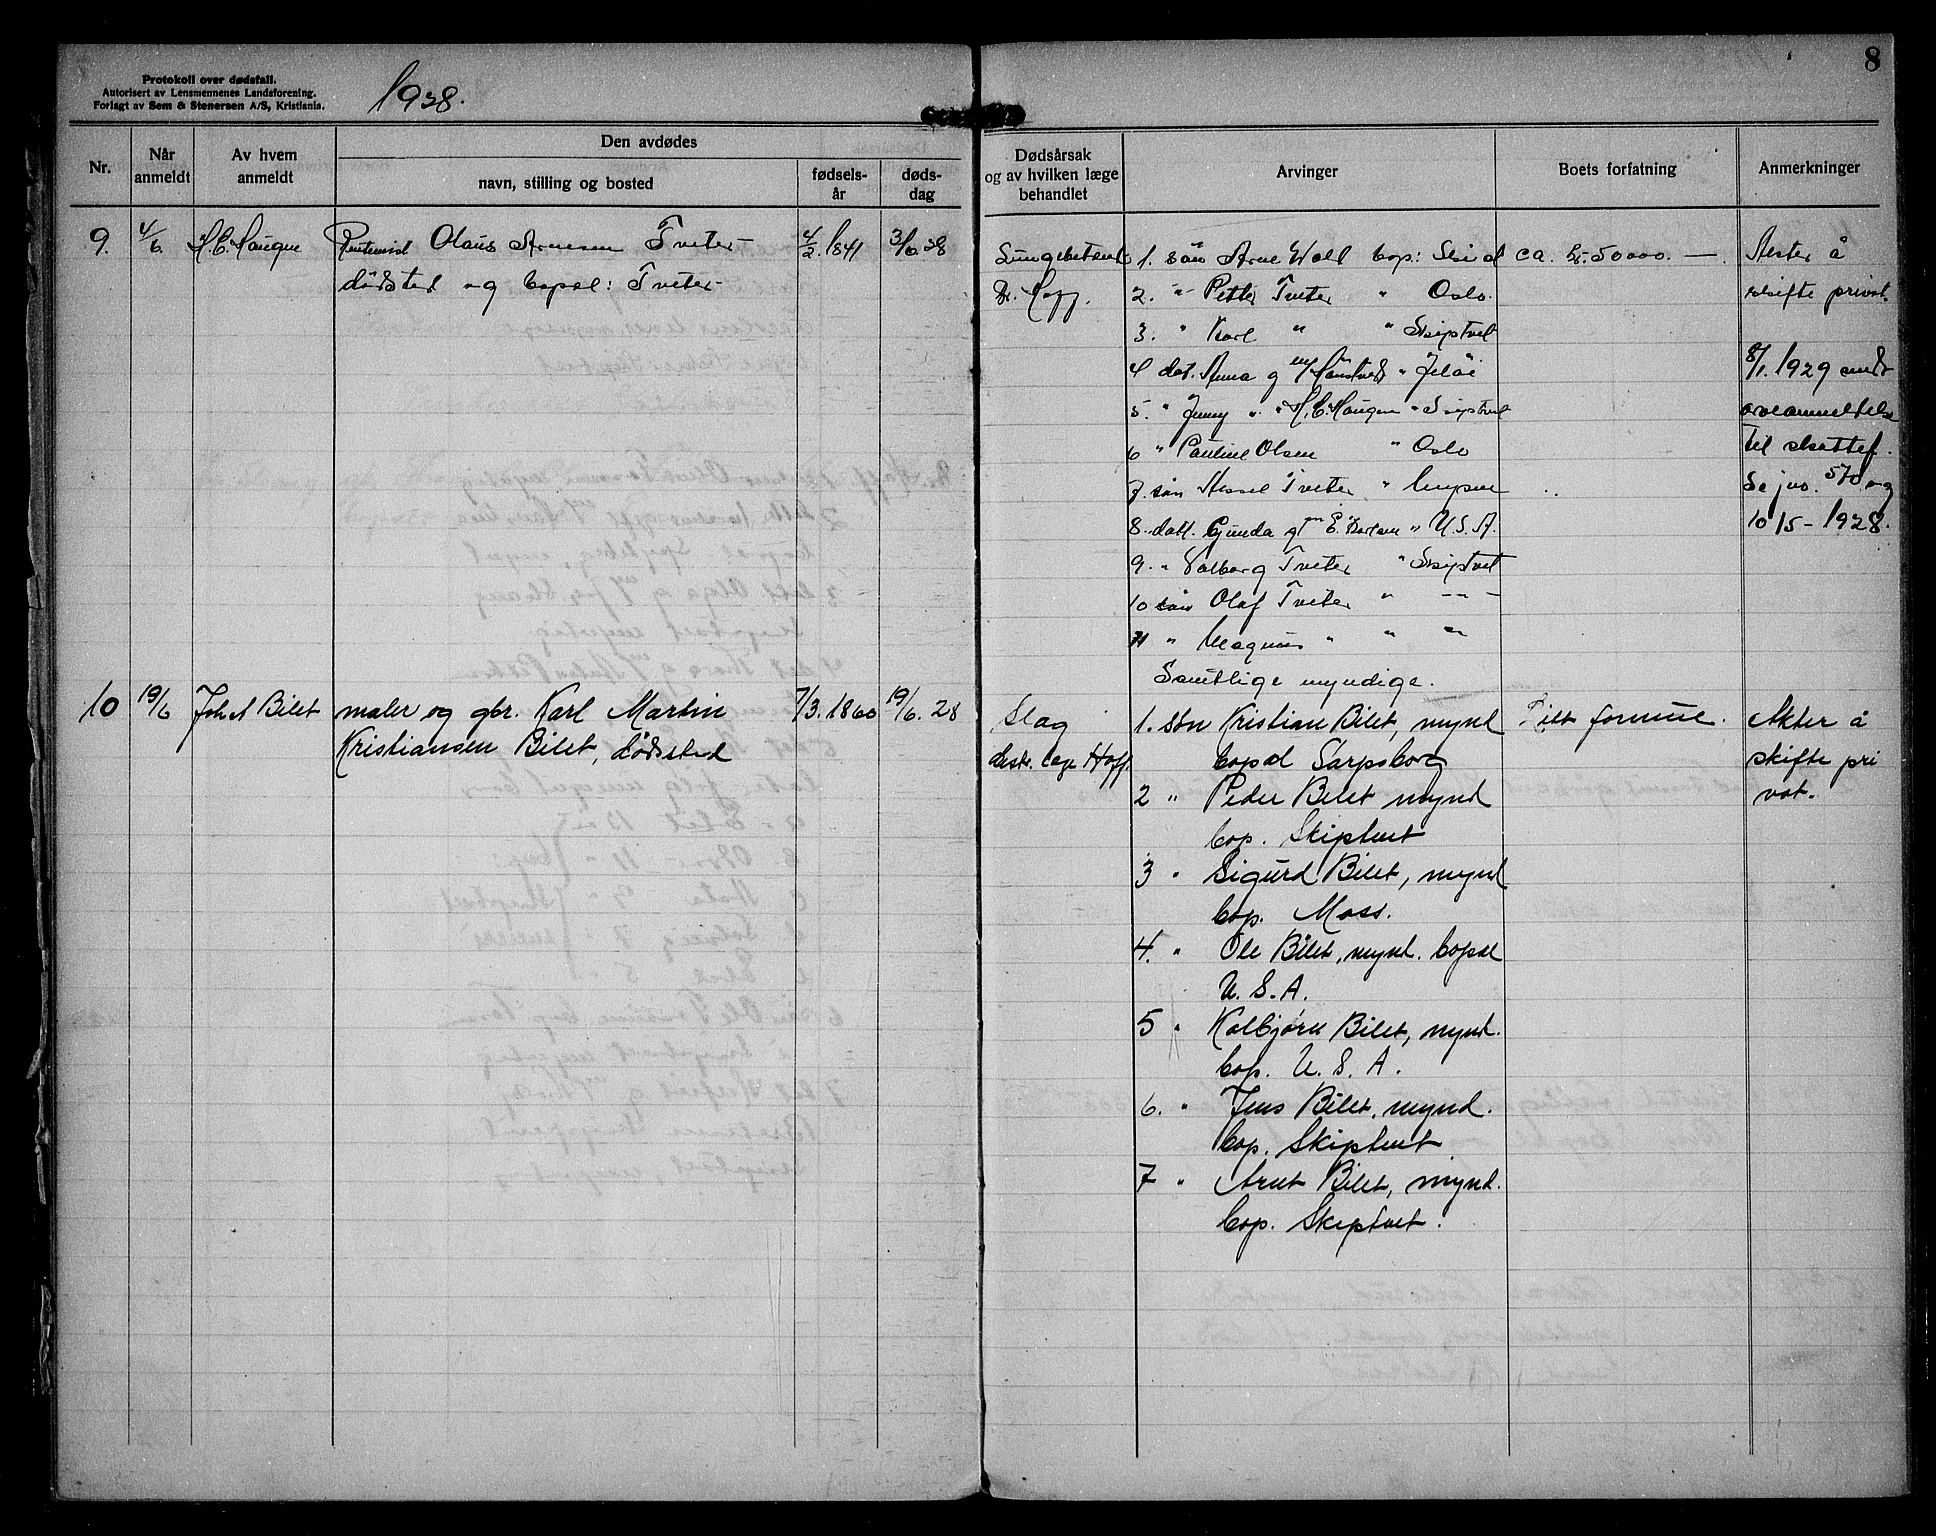 Protokoll over dødsfall.
Autorisert av Lensmennenes Landsforening.
Forlagt av Sem & Stenersen A/S, Kristiania.
1928.
8
Nr.
Når anmeldt
Av hvem anmeldt
Den avdødes
navn, stilling og bosted
fødsels-
år
døds-
dag
Dødsårsak
og av hvilken læge
behandlet
Arvinger
Boets forfatning
Anmerkninger
9. 4/6. H.E. Haugen Olaus Arnesen Tveter 4/2. 1841 3/6 28
dödsted og bopæl: Tveter
Dr. Hoff.
1. sön Arne Woll bop: Skid
2. " Petter Tveter " Oslo.
3. " Karl " " Skiptvet
4 dat. Anna g m/ " Jelöi
5. " Jenny " " H.E. Haugen " Skiptvet
6 " Pauline Olsen " Oslo
7. sön Tveter, "
8. datt. Gunda g m E. Karlsen " U.S.A.
9. " Valborg Tveter " Skiptvet
10 sön Olaf Tveter " -"-
11 " Magnus " " "
Samtlige myndige.
ca. kr. 50000.—
Akter å
skifte privat.
8/1. 1929 sendt
arveanmeldelse
til skattef.
Se jno. 570 og
1015-1928.
10 19/6 Joh A Bilet maler og gbr. Karl Martin 7/3. 1860 19/6. 28
Kristiansen Bilet, dödsted
Slag
distr. læge Hoff.
1. søn Kristian Bilet, mynd
bopæl Sarpsborg
2 " Peder Bilet mynd
bop. Skiptvet
3 " Sigurd Bilet, mynd
bop. Moss.
4. " Ole Bilet, mynd. bopæl
U. S. A.
5 " Kolbjørn Bilet, mynd.
bop. U. S. A.
6. " Jens Bilet, mynd.
bop. Skiptvet
7 " Arnt Bilet, mynd.
bop. Skiptvet.
formue.
Akter å
skifte pri
vat.